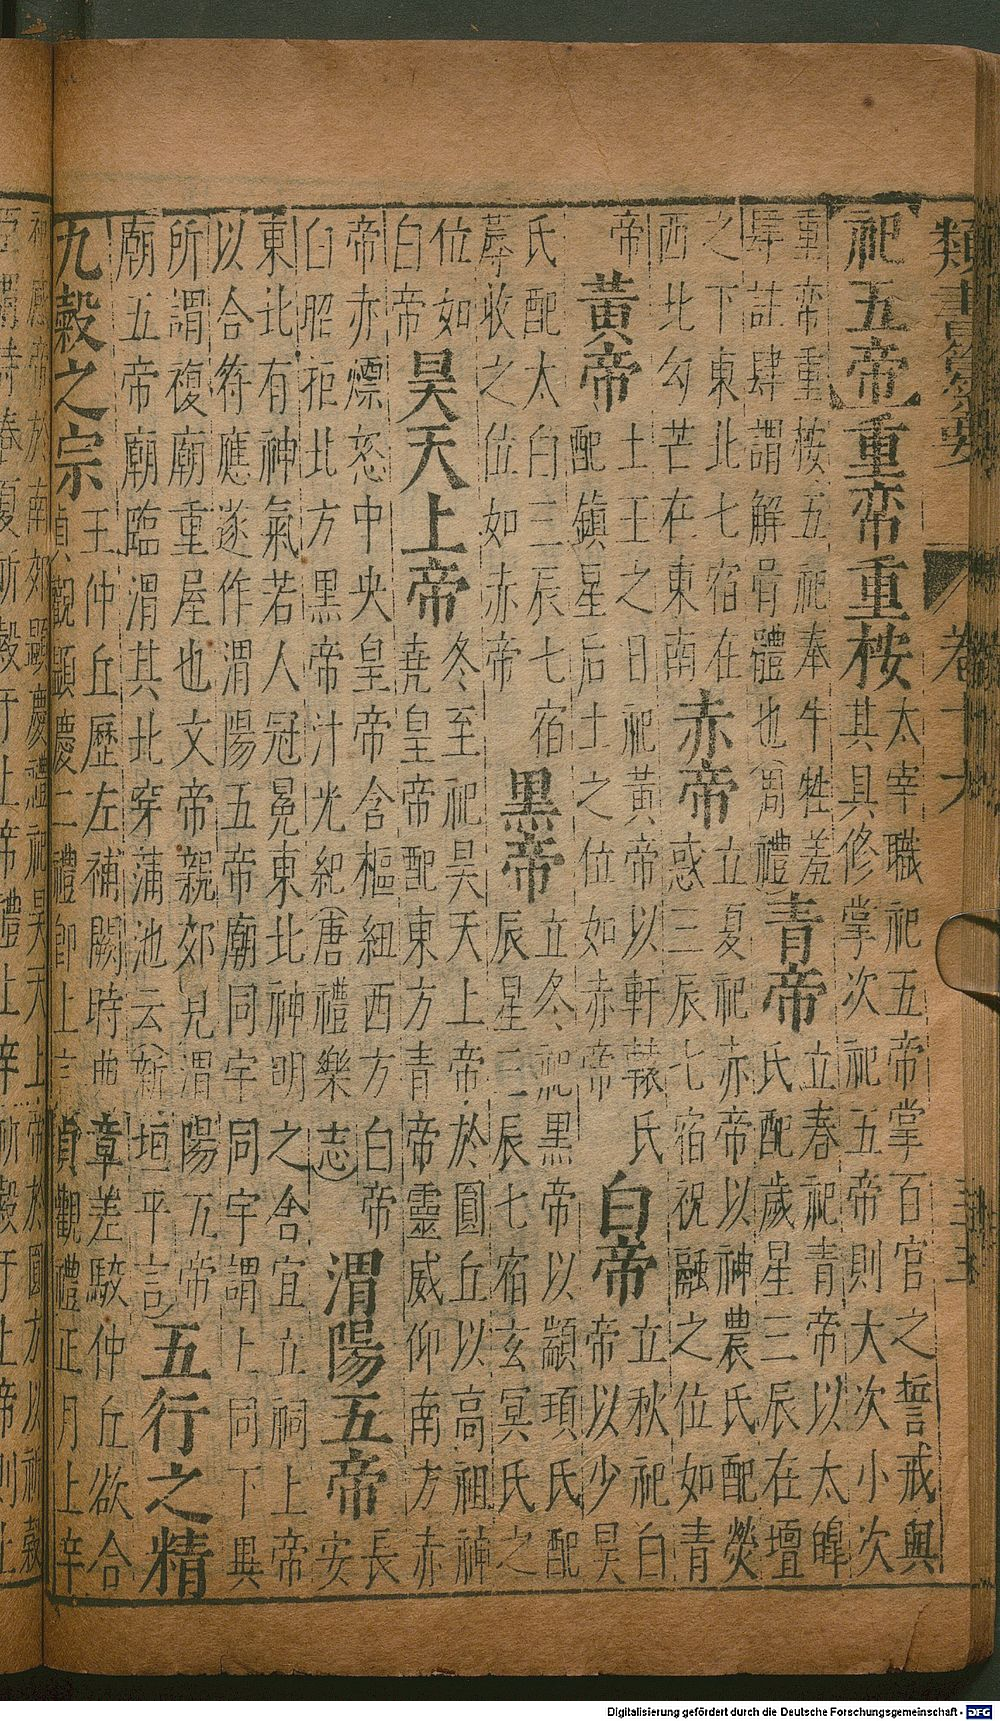 類書纂要 卷十九
祀五帝 重帟重桉 太宰職祀五帝掌百官之誓戒與
其具修掌次祀五帝則大次小次
重帟重桉五祀奉牛牲羞
肆註肆謂解骨體也(周禮) 青帝 立春祀青帝以太皥
氏配歲星三辰在壇
之下東北七宿在
西北勾芒在東南 赤帝 立夏祀赤帝以神農氏配熒
惑三辰七宿祝融之位如青
帝 黃帝 土王之日祀黃帝以軒轅氏
配鎮星后土之位如赤帝 白帝 立秋祀白
帝以少昊
氏配太白三辰七宿
蓐收之位如赤帝 黑帝 立冬祀黑帝以顓頊氏配
辰星三辰七宿玄冥氏之
位如
白帝 昊天上帝 冬至祀昊天上帝於圓丘以高祖神
堯皇帝配東方青帝靈威仰南方赤
帝赤熛怒中央皇帝含樞紐西方白帝
白昭拒北方黑帝汁光紀(唐禮樂志) 渭陽五帝 長
安
東北有神氣若人冠冕東北神明之舍宜立祠上帝
以合符應遂作渭陽五帝廟同宇同宇謂上同下異
所謂複廟重屋也文帝親郊見渭陽五帝
廟五帝廟臨渭其北穿蒲池云(新垣平言) 五行之精
九穀之宗 王仲丘歷左補闕時典章差駁仲丘欲合
貞觀顯慶二禮卽上言貞觀禮正月上辛
祀感帝於南郊顯慶禮祀昊天上帝於圓丘以祈穀
臣謂詩春夏祈穀于上帝禮上辛祈穀于上帝則上
Digitalisierung gefördert durch die Deutsche Forschungsgemeinschaft - DFG